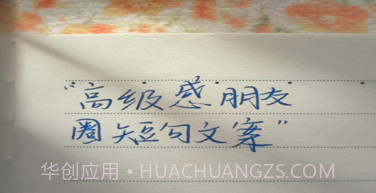 “高级感朋友
圈短句文案”
华创应用·HUACHUANGZS.COM